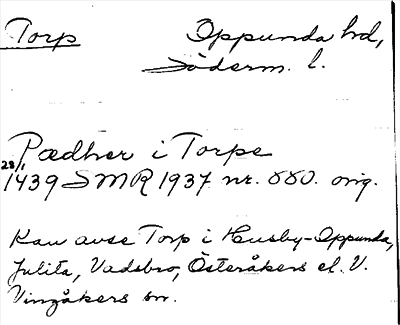 Torp
Oppunda hd,
Söderm. l.
Pædher i Torpe
28/1
1439 SMR 1937 nr. 880. orig.
Kan avse Torp i Husby-Oppunda,
Julita, Vadsbro, Österåkers el. V.
Vingåkers sn.